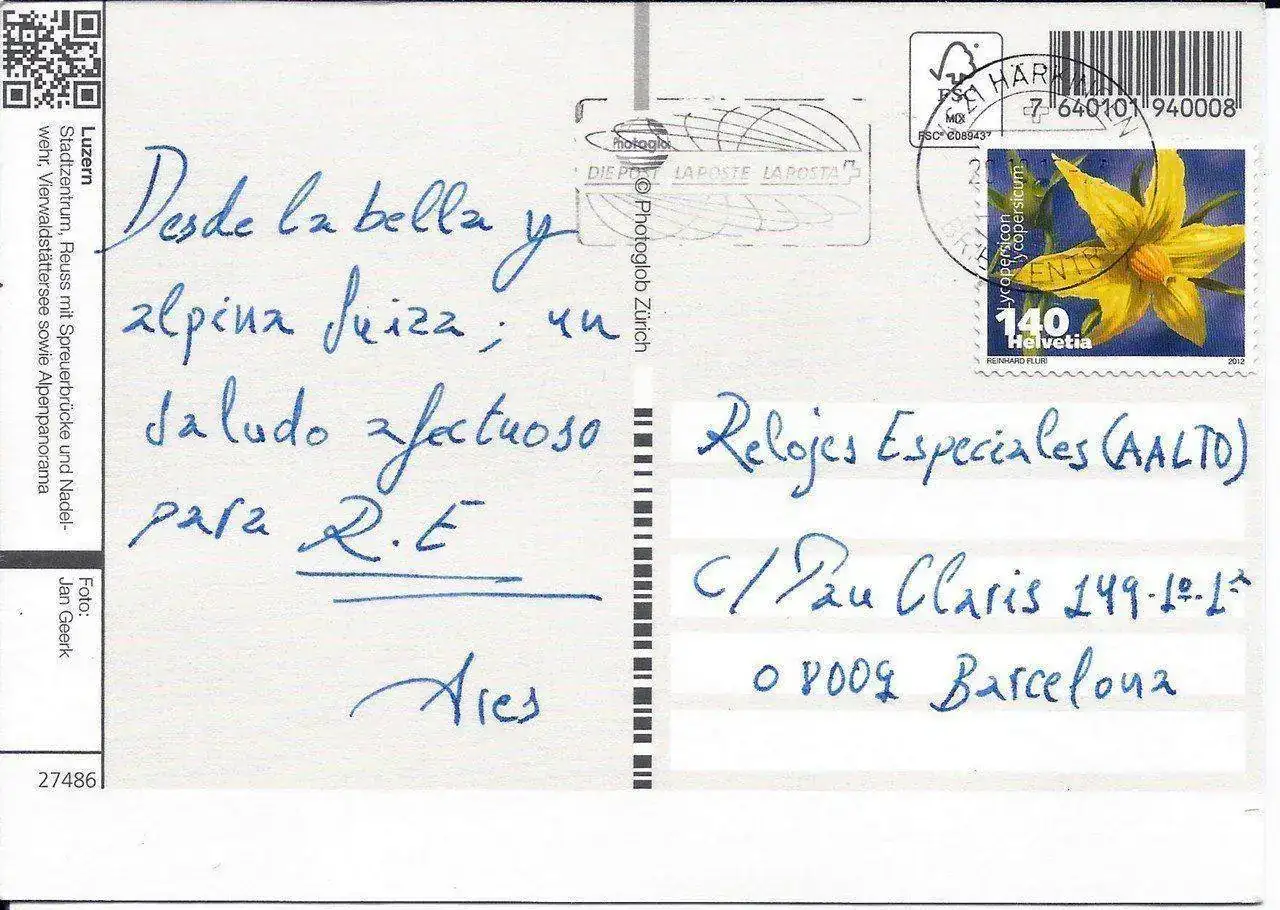 Luzern
Stadtzentrum, Reuss mit Spreuerbrücke und Nadel-
wehr, Vierwaldstättersee sowie Alpenpanorama
Foto:
Jan Geerk
27486
Desde la bella y
alpina Suiza, un
saludo afectuoso
para R.E
Ares
Photoglob
© Photoglob Zürich
DIE POST LA POSTE LA POSTA
FSC
MIX
FSC® C089437
7 640101 940008
HÄRKINGEN
BRIEFZENTRUM
Lycopersicon
lycopersicum
140
Helvetia
REINHARD FLURI 2012
Relojes Especiales (AALTO)
C/ Pau Claris 149-1º-1ª
08009 Barcelona